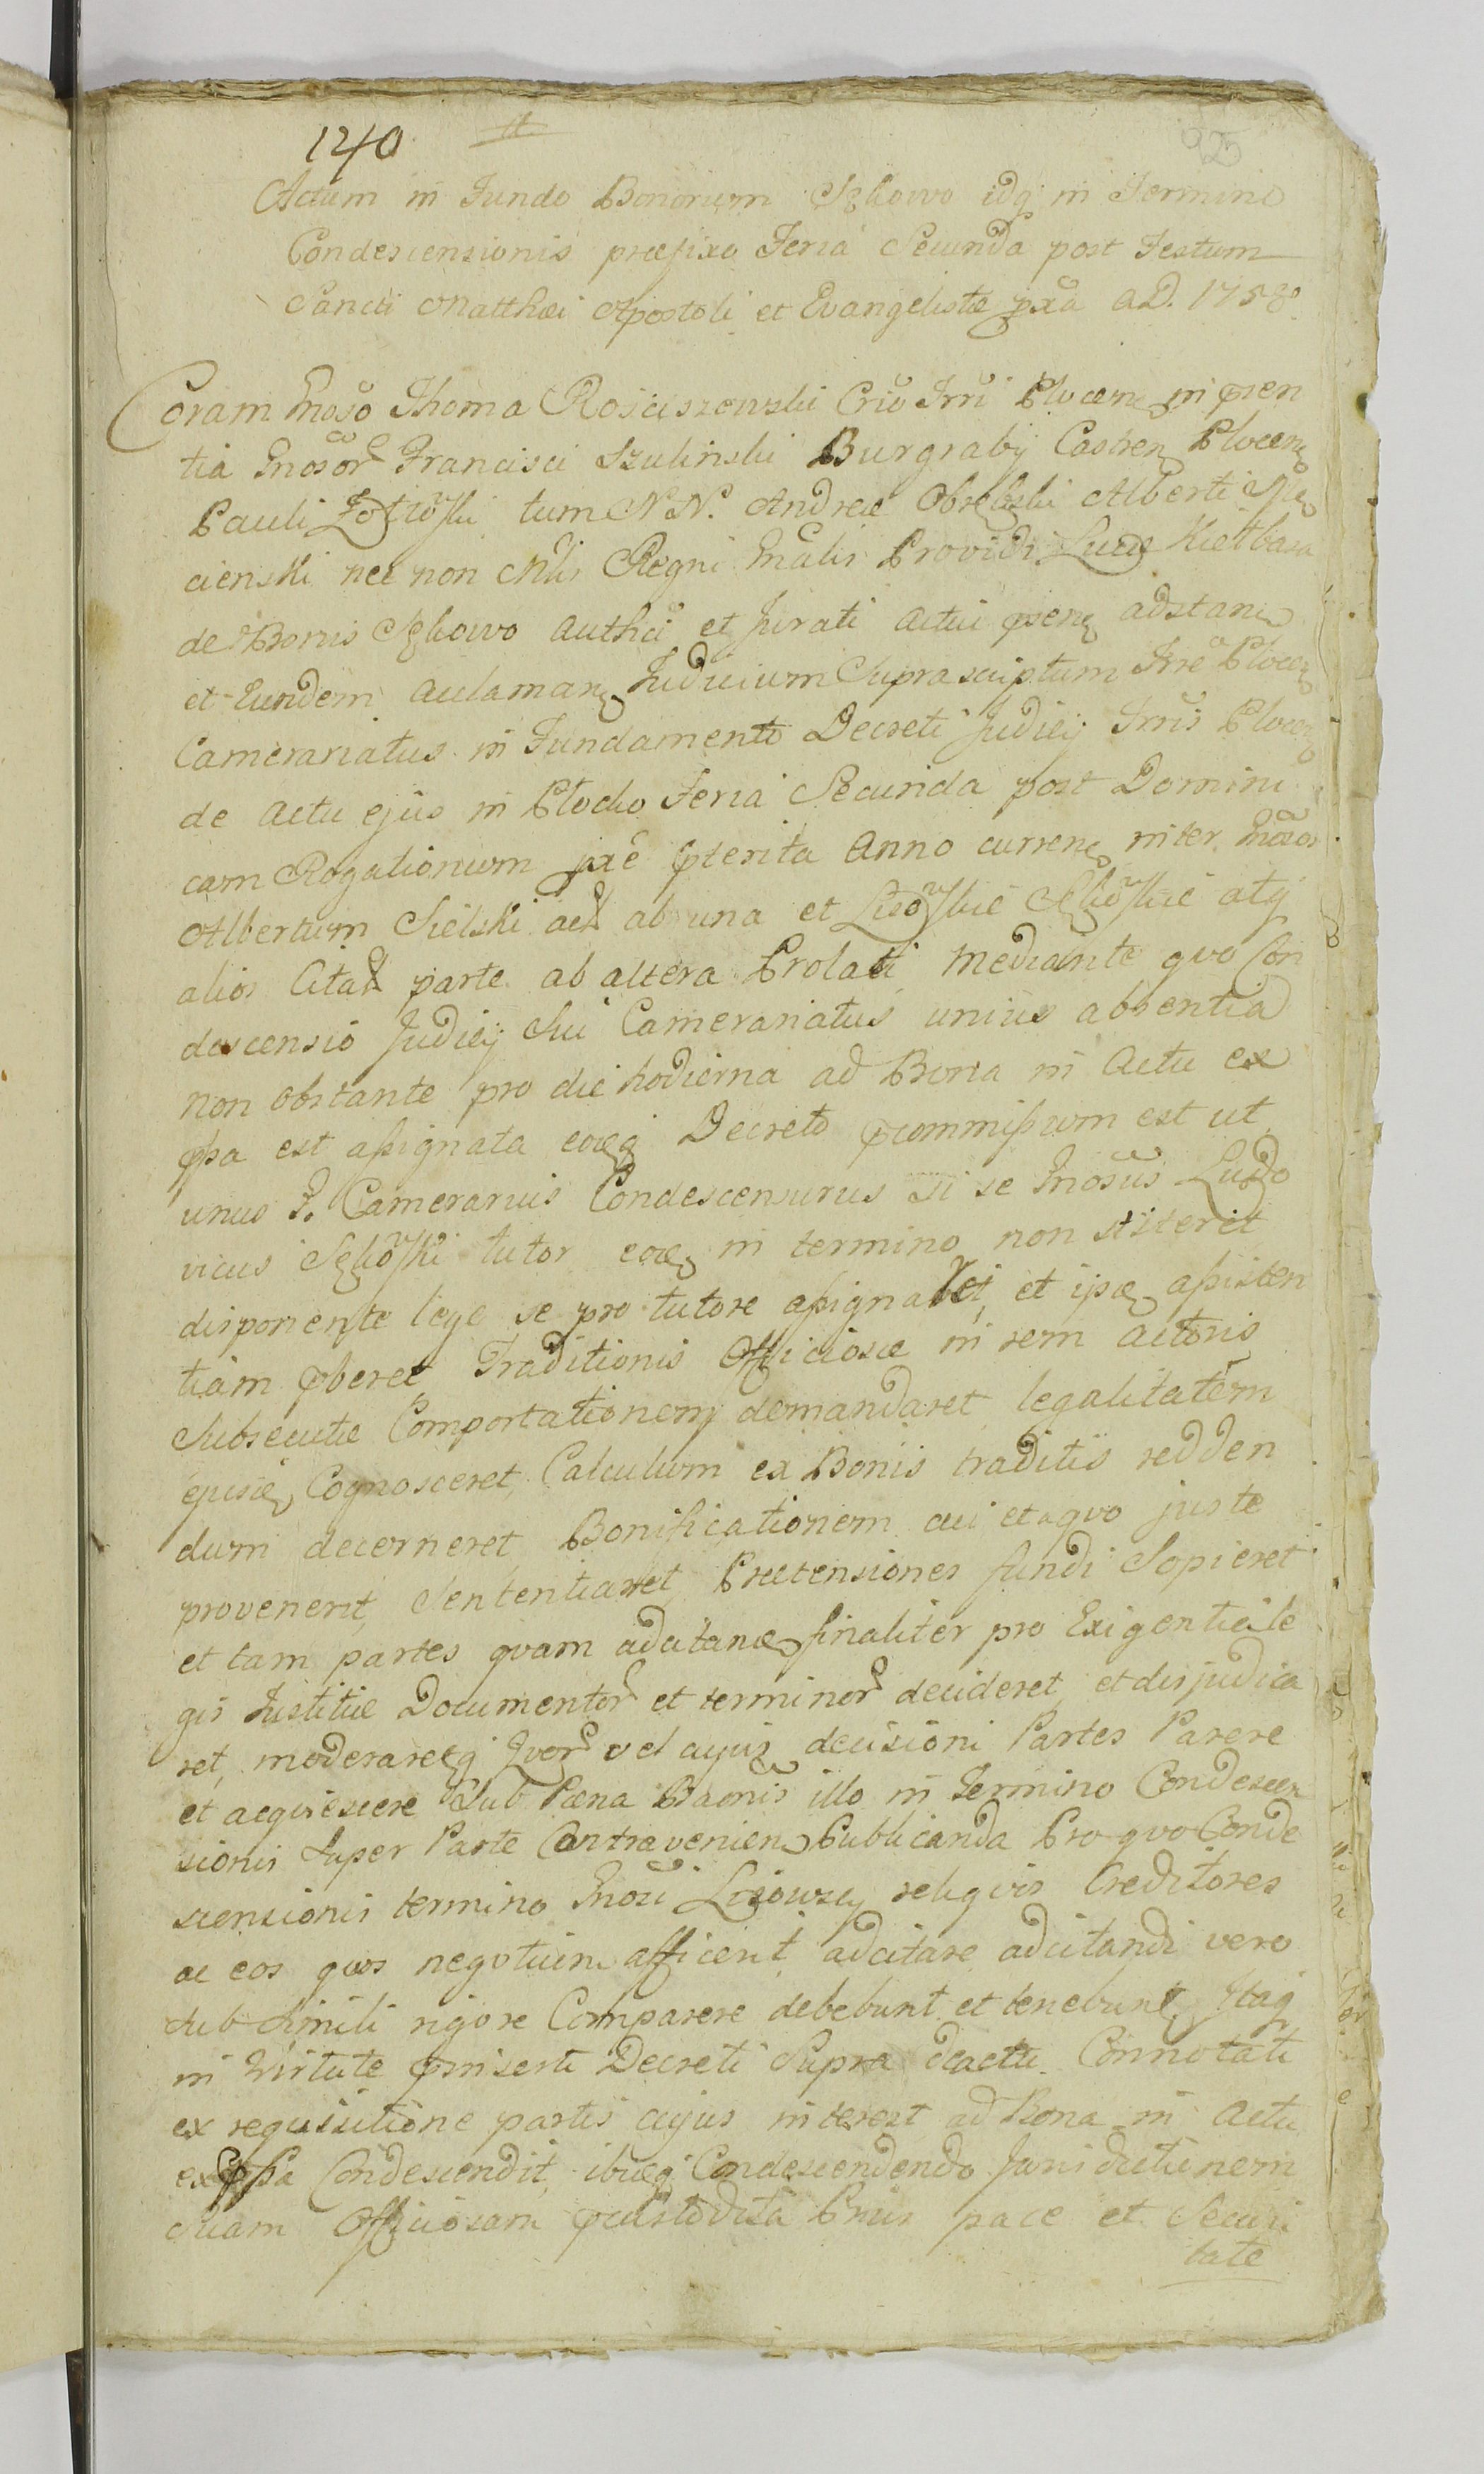 1240
95
Actum in Fundo Bonorum Sękowo idq; in Termino
Condescensionis præfixo Feria Secunda post Festum
Sancti Matthæi Apostoli et Evangelistæ pxa A.D. 1758º
Coram Gnoso Thoma Rosciszewski Crio Trri Plocen in præsen
tia Gnosor Francisci Szulinski Burgrabij Castren Plocen
Pauli tum N.N. Andreæ Obrębski Alberti
cienski nec non Mlis Regni Gnalis Providi Lucæ Kiełbasa
de Bonis Sękowo Authci et Jurati actui præsen adstan
et Eundem aclaman Judicium Suprascriptum Trre Plocen
Camerariatus in Fundamento Decreti Judicij Trris Plocen
de actu ejus in Płocko Feria Secunda post Domini
cam Rogationum pxe præterita Anno curren inter Gnosos
Albertum Sielski act ab una et Lisowskie Sękowskie atq;
alios Citat parte ab altera Prolati mediante quo Con
descensio Judicij Sui Camerariatus unius absentia
non obstante pro die hodierna ad Bona in Actu ex
pssa est assignata eoq; Decreto præcommissum est ut
unus J. Camerarius Condescensurus si se Gnosus Ludo
vicus Sękowski tutor eor in termino non stiterit
disponente lege se pro tutore assignabit, et ipse assisten
tiam præberet Traditionis Officiosæ in rem actoris
Subsecutæ Comportationem demandaret legalitatem
ejusd Cognosceret, Calculum ex Bonis traditis redden
dum decerneret Bonificationem cui et a quo juste
provenerit, Sententiaret, Prætensiones fundi Sopieret
et tam partes quam adcitand finaliter pro Exigentia le
gis Justitiæ Documentor et terminor decideret, et disjudica
ret, moderaretq; Quor vel cujus decisioni Partes Parere
et acquiescere Sub Pæna Bannis illo in Termino Condescen
sionis Super Parte Contravenien Publicanda Pro quo Conde
scensionis termino Gnosi Lisowscy reliquis Creditores
ac eos quos negotium afficerit adcitare adcitandi vero
sub simili rigore Comparere debebunt et tenebunt, Itaq;
in Virtute præinserti Decreti Supra de actu Connotati
ex requisitione partis cujus interest ad Bona in Actu
expssa Condescendit, ibiq; Condescendendo Jurisdictionem
suam Officiosam præcustodita Prius pace et Securi
tate